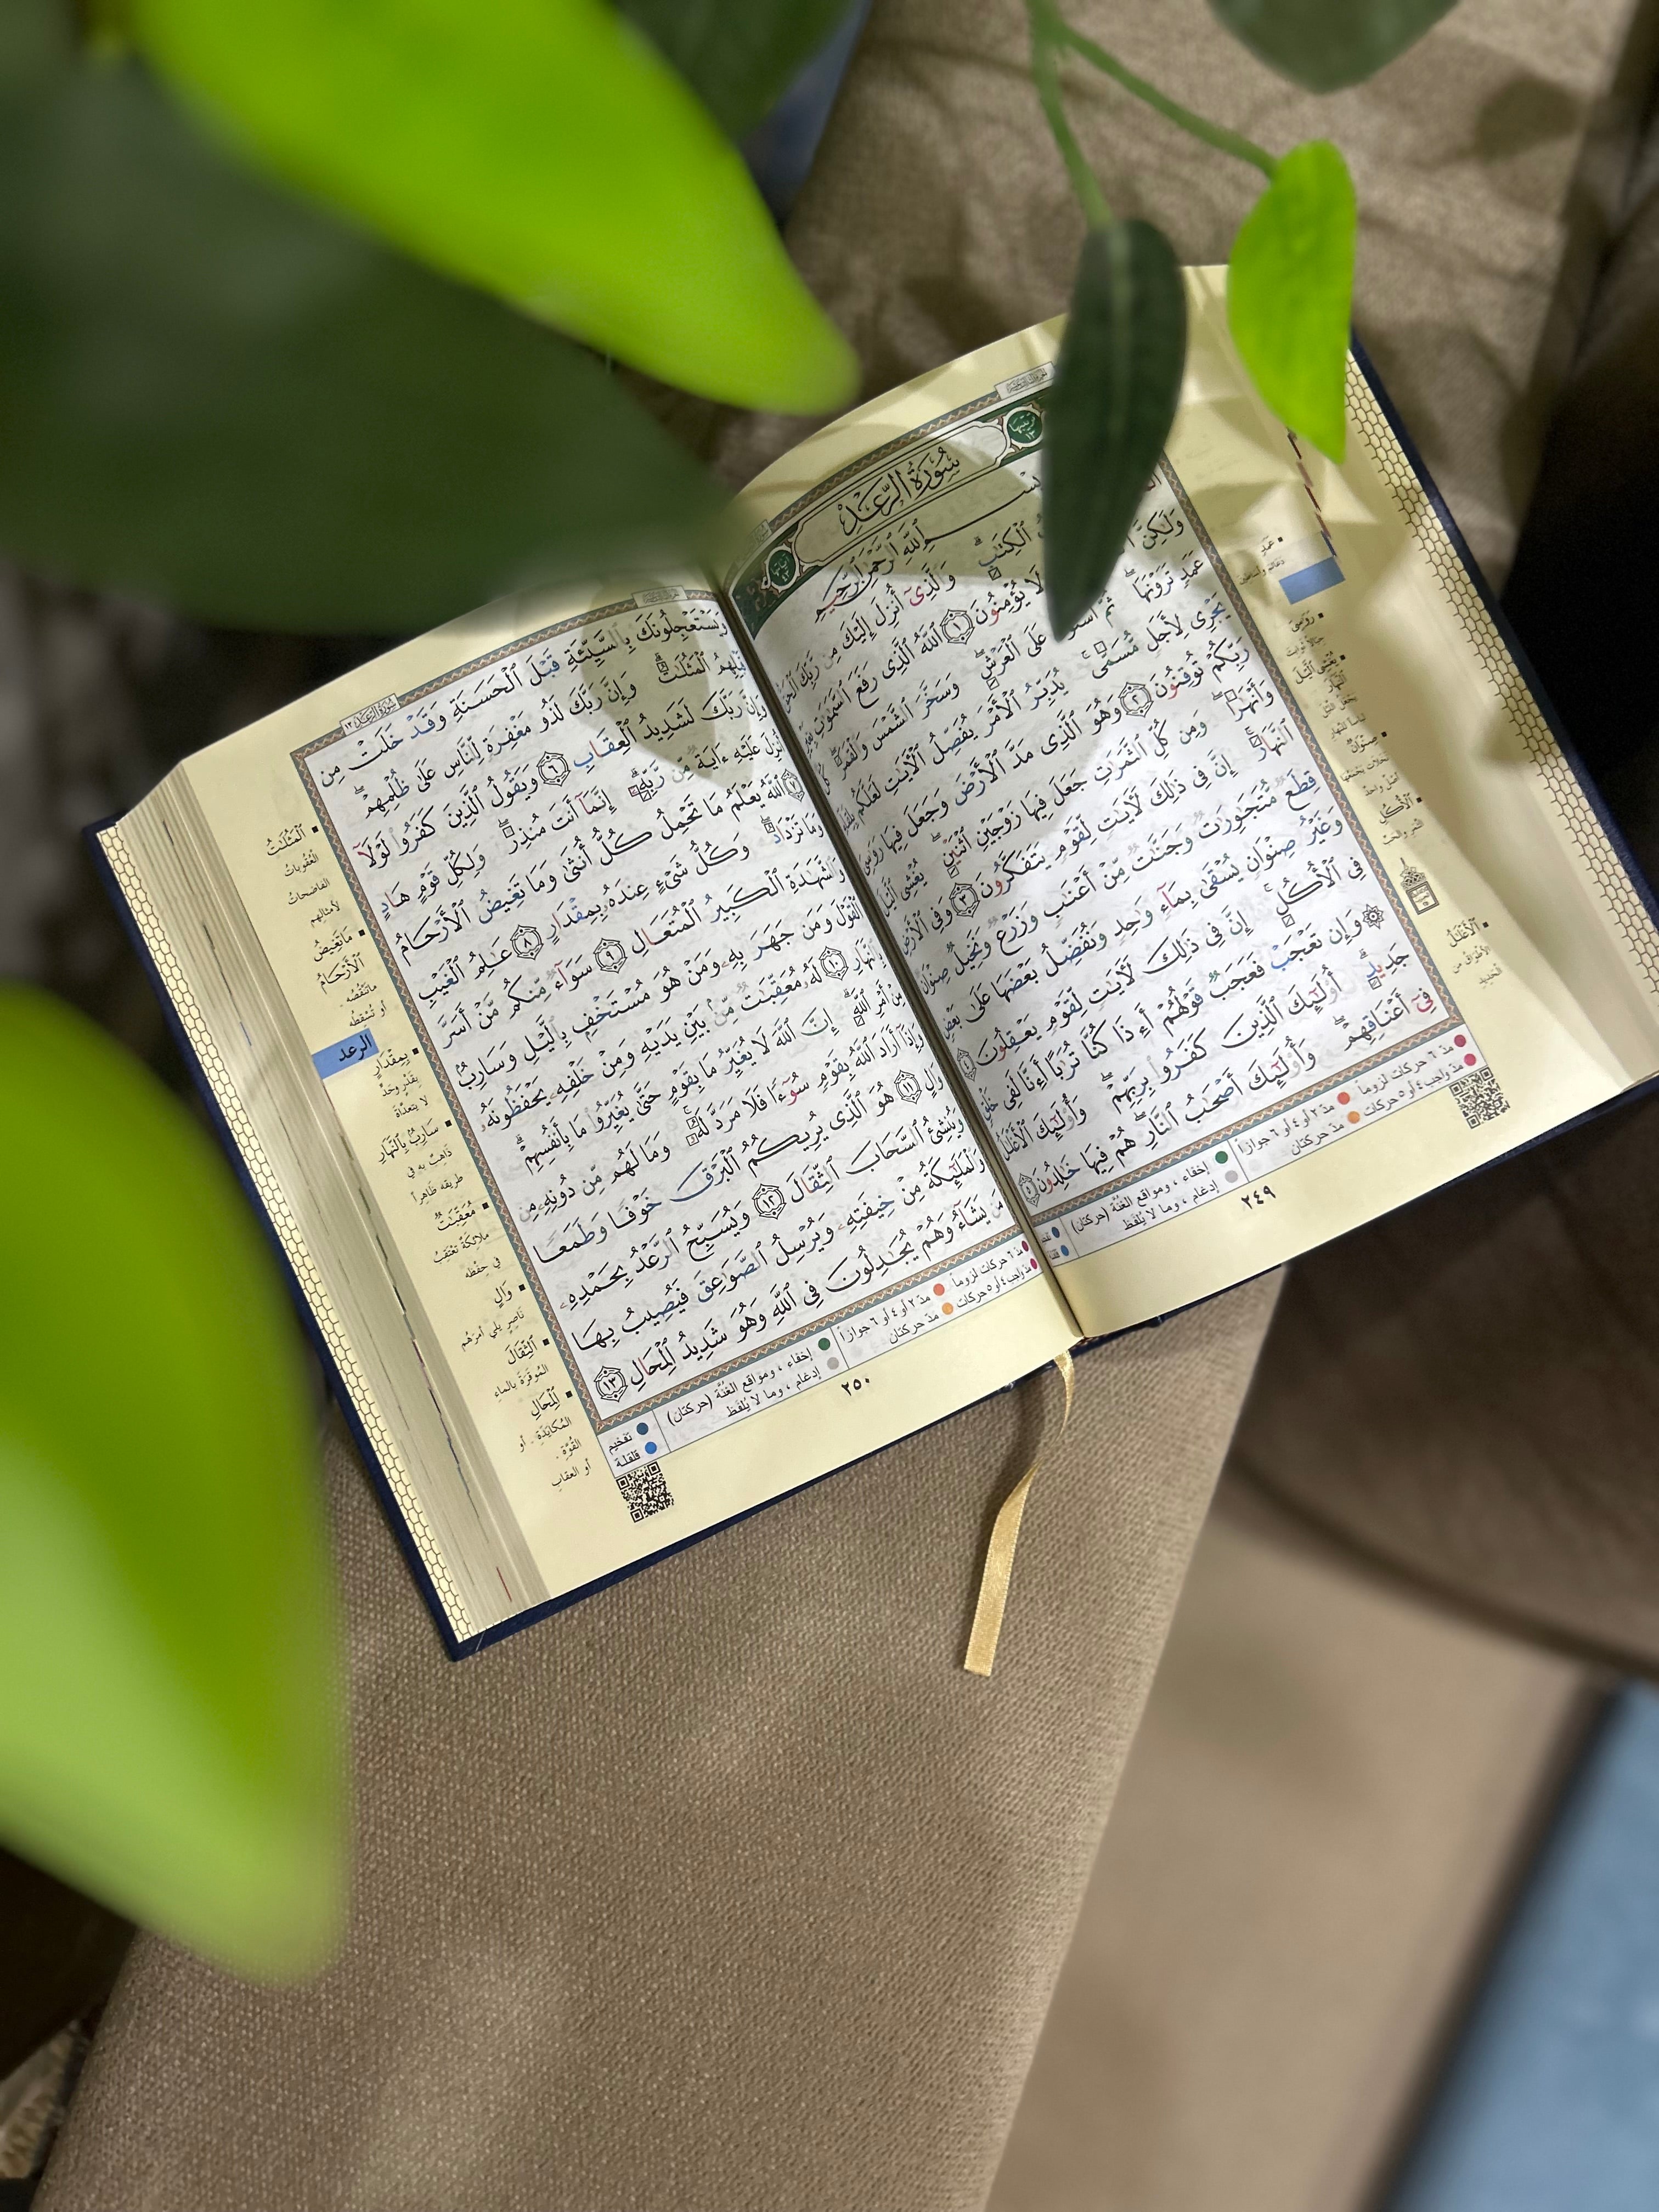 سُورَةُ الرَّعْدِ
ٱللَّهِ ٱلرَّحْمَٰنِ ٱلرَّحِيمِ
ٱلْكِتَٰبِ ۗ وَٱلَّذِىٓ أُنزِلَ إِلَيْكَ مِن رَّبِّكَ ٱلْحَقُّ
وَلَٰكِنَّ لَا يُؤْمِنُونَ ١ ٱللَّهُ ٱلَّذِى رَفَعَ ٱلسَّمَٰوَٰتِ
عَمَدٍ تَرَوْنَهَا ۖ ثُمَّ عَلَى ٱلْعَرْشِ ۖ وَسَخَّرَ ٱلشَّمْسَ وَٱلْقَمَرَ ۖ كُلٌّ
يَجْرِى لِأَجَلٍ مُّسَمًّى ۚ يُدَبِّرُ ٱلْأَمْرَ يُفَصِّلُ ٱلْأَيَٰتِ لَعَلَّكُم بِلِقَآءِ
رَبِّكُمْ تُوقِنُونَ ٢ وَهُوَ ٱلَّذِى مَدَّ ٱلْأَرْضَ وَجَعَلَ فِيهَا رَوَٰسِىَ
وَأَنْهَٰرًا ۖ وَمِن كُلِّ ٱلثَّمَرَٰتِ جَعَلَ فِيهَا زَوْجَيْنِ ٱثْنَيْنِ ۖ يُغْشِى ٱلَّيْلَ
ٱلنَّهَارَ ۚ إِنَّ فِى ذَٰلِكَ لَأَيَٰتٍ لِّقَوْمٍ يَتَفَكَّرُونَ ٣ وَفِى ٱلْأَرْضِ
قِطَعٌ مُّتَجَٰوِرَٰتٌ وَجَنَّٰتٌ مِّنْ أَعْنَٰبٍ وَزَرْعٌ وَنَخِيلٌ صِنْوَانٌ
وَغَيْرُ صِنْوَانٍ يُسْقَىٰ بِمَآءٍ وَٰحِدٍ وَنُفَضِّلُ بَعْضَهَا عَلَىٰ بَعْضٍ
فِى ٱلْأُكُلِ ۚ إِنَّ فِى ذَٰلِكَ لَأَيَٰتٍ لِّقَوْمٍ يَعْقِلُونَ ٤
۞ وَإِن تَعْجَبْ فَعَجَبٌ قَوْلُهُمْ أَءِذَا كُنَّا تُرَٰبًا أَءِنَّا لَفِى خَلْقٍ
جَدِيدٍ ۗ أُو۟لَٰٓئِكَ ٱلَّذِينَ كَفَرُوا۟ بِرَبِّهِمْ ۖ وَأُو۟لَٰٓئِكَ ٱلْأَغْلَٰلُ
فِىٓ أَعْنَاقِهِمْ ۖ وَأُو۟لَٰٓئِكَ أَصْحَٰبُ ٱلنَّارِ ۖ هُمْ فِيهَا خَٰلِدُونَ ٥
مدّ ٦ حركات لزوماً مدّ ٢ أو ٤ أو ٦ جوازاً
مدّ واجب ٤ أو ٥ حركات مدّ حركتان
إخفاء ، ومواقع الغُنَّة (حركتان)
إدغام ، وما لا يُلفَظ
٢٤٩
وَيَسْتَعْجِلُونَكَ بِٱلسَّيِّئَةِ قَبْلَ ٱلْحَسَنَةِ وَقَدْ خَلَتْ مِن
قَبْلِهِمُ ٱلْمَثُلَٰتُ ۗ وَإِنَّ رَبَّكَ لَذُو مَغْفِرَةٍ لِّلنَّاسِ عَلَىٰ ظُلْمِهِمْ ۖ
وَإِنَّ رَبَّكَ لَشَدِيدُ ٱلْعِقَابِ ٦ وَيَقُولُ ٱلَّذِينَ كَفَرُوا۟ لَوْلَآ
أُنزِلَ عَلَيْهِ ءَايَةٌ مِّن رَّبِّهِۦٓ ۗ إِنَّمَآ أَنتَ مُنذِرٌ ۖ وَلِكُلِّ قَوْمٍ هَادٍ
٧ ٱللَّهُ يَعْلَمُ مَا تَحْمِلُ كُلُّ أُنثَىٰ وَمَا تَغِيضُ ٱلْأَرْحَامُ
وَمَا تَزْدَادُ ۖ وَكُلُّ شَىْءٍ عِندَهُۥ بِمِقْدَارٍ ٨ عَٰلِمُ ٱلْغَيْبِ
وَٱلشَّهَٰدَةِ ٱلْكَبِيرُ ٱلْمُتَعَالِ ٩ سَوَآءٌ مِّنكُم مَّنْ أَسَرَّ
ٱلْقَوْلَ وَمَن جَهَرَ بِهِۦ وَمَنْ هُوَ مُسْتَخْفٍۭ بِٱلَّيْلِ وَسَارِبٌۢ
بِٱلنَّهَارِ ١٠ لَهُۥ مُعَقِّبَٰتٌ مِّنۢ بَيْنِ يَدَيْهِ وَمِنْ خَلْفِهِۦ يَحْفَظُونَهُۥ
مِنْ أَمْرِ ٱللَّهِ ۗ إِنَّ ٱللَّهَ لَا يُغَيِّرُ مَا بِقَوْمٍ حَتَّىٰ يُغَيِّرُوا۟ مَا بِأَنفُسِهِمْ ۗ
وَإِذَآ أَرَادَ ٱللَّهُ بِقَوْمٍ سُوٓءًا فَلَا مَرَدَّ لَهُۥ ۚ وَمَا لَهُم مِّن دُونِهِۦ مِن
وَالٍ ١١ هُوَ ٱلَّذِى يُرِيكُمُ ٱلْبَرْقَ خَوْفًا وَطَمَعًا
وَيُنشِئُ ٱلسَّحَابَ ٱلثِّقَالَ ١٢ وَيُسَبِّحُ ٱلرَّعْدُ بِحَمْدِهِۦ
وَٱلْمَلَٰٓئِكَةُ مِنْ خِيفَتِهِۦ وَيُرْسِلُ ٱلصَّوَٰعِقَ فَيُصِيبُ بِهَا
مَن يَشَآءُ وَهُمْ يُجَٰدِلُونَ فِى ٱللَّهِ وَهُوَ شَدِيدُ ٱلْمِحَالِ ١٣
الْمَثُلاتُ
العُقُوباتُ
الفاضحاتُ
لأمثالِهم
ما تَغِيضُ
الْأَرْحَامُ
ما تَنْقُصُه
أو تُسْقِطُه
الرعد
بِمِقْدَارٍ
بقَدْرٍ وحَدٍّ
لا يتعدّاهُ
سَارِبٌ بِالنَّهَارِ
ذاهِبٌ به في
طريقه ظاهِراً
مُعَقِّبَاتٌ
ملائِكةٌ تعتَقِبُ
في حِفظه
وَالٍ
ناصِرٍ يلي أمرَهُم
الثِّقَالَ
المُوقَرَةَ بالماء
الْمِحَالِ
المُكايَدَةِ . أو
القُوَّةِ .
أو العِقابِ
مدّ ٦ حركات لزوماً مدّ ٢ أو ٤ أو ٦ جوازاً
مدّ واجب ٤ أو ٥ حركات مدّ حركتان
إخفاء ، ومواقع الغُنَّة (حركتان) تفخيم
إدغام ، وما لا يُلفَظ قلقلة
٢٥٠